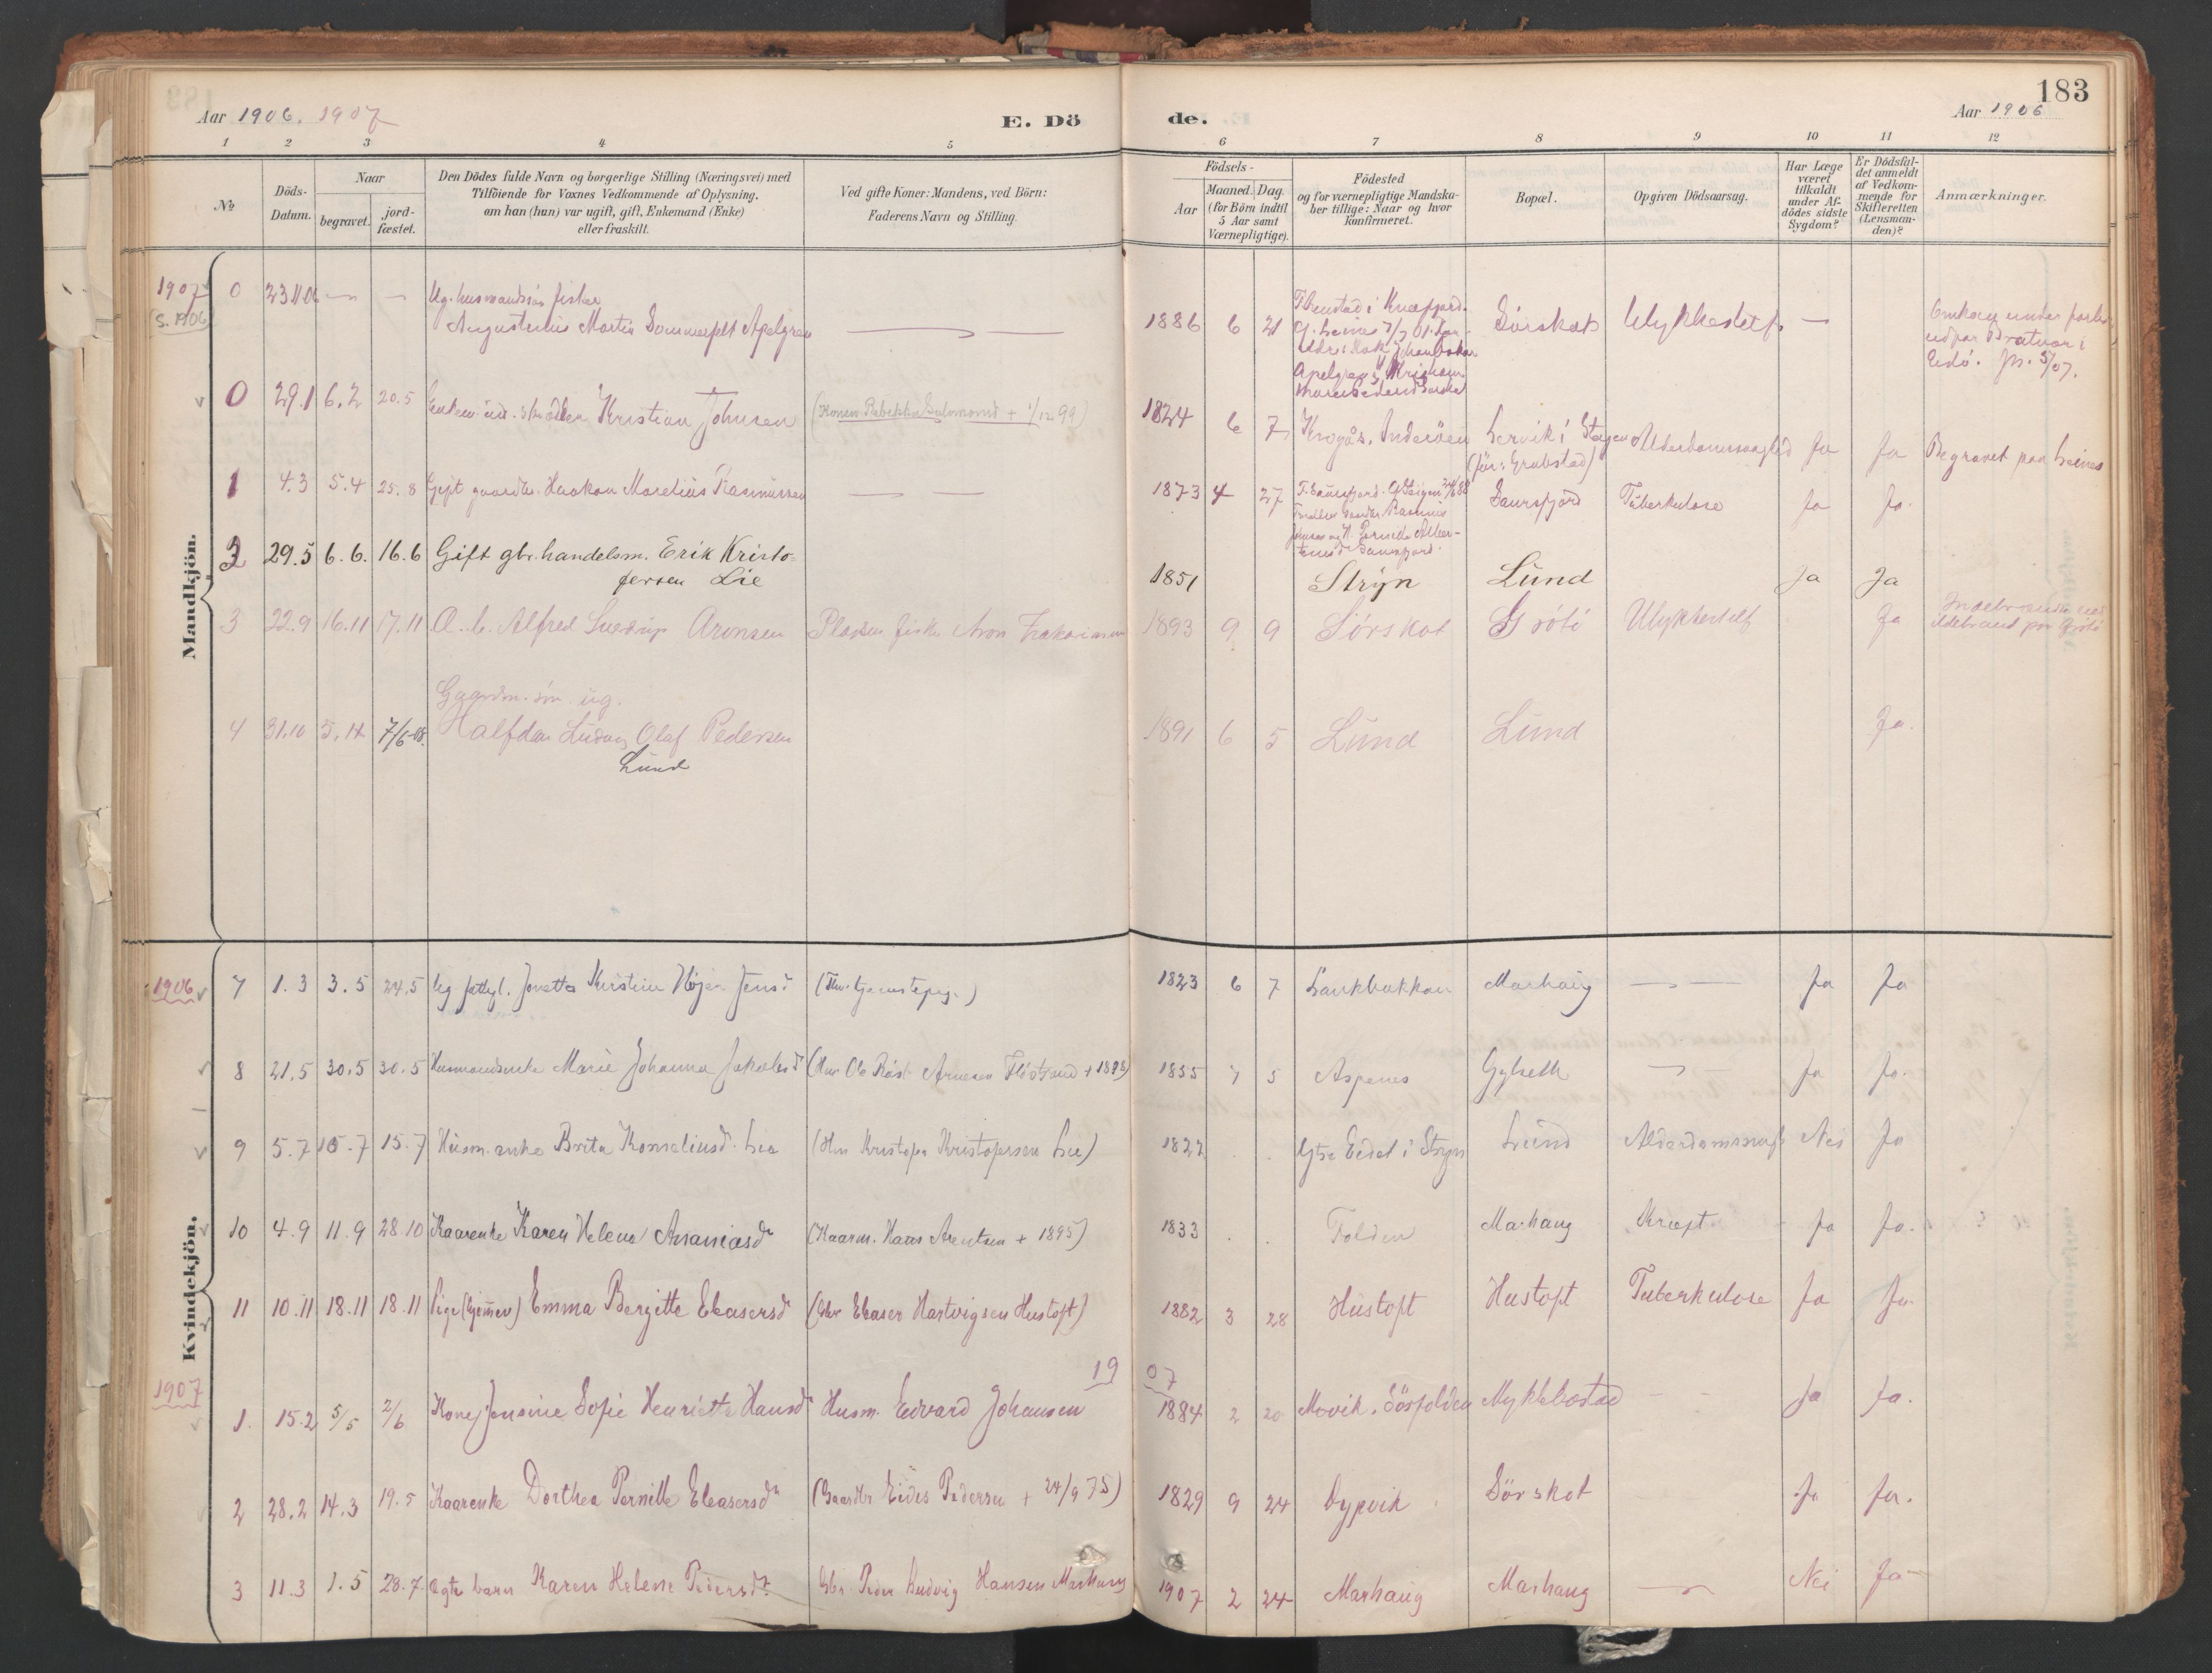 183
Aar 1906. 1907
E. Dö
de.
Aar 1906
1 2 3 4 5 6 7 8 9 10 11 12
No
Döds-
Datum.
Naar
begravet.
jord-
fæstet.
Den Dödes fulde Navn og borgerlige Stilling (Næringsvei) med
Tilföiende for Voxnes Vedkommende af Oplysning,
om han (hun) var ugift, gift, Enkemand (Enke)
eller fraskilt.
Ved gifte Koner: Mandens, ved Börn:
Faderens Navn og Stilling.
Födsels-
Aar
Maaned. Dag.
(for Börn indtil
5 Aar samt
Værnepligtige).
Födested
og for værnepligtige Mandska-
ber tillige: Naar og hvor
konfirmeret.
Bopæl.
Opgiven Dödsaarsag.
Har Læge
været
tilkaldt
under Af-
dödes sidste
Sygdom?
Er Dödsfal-
det anmeldt
af Vedkom-
mende for
Skifteretten
(Lensman-
den)?
Anmærkninger.
Mandkjön.
1907
(S. 1906)
0 23.11.06 — — Ug. husmandssön fisker
Augustinius Martin Sommerfelt Apelgren — — 1886 6 21 Sörskot Ulykkestilf. —
0 29.1 6.2 20.5 Kristian Johnsen (Konen Rebekka Salomonsd + 1/12 99) 1824 6 7 Krogås, Inderöen Lervik i Steigen Alderdomssvaghed Ja Ja Begravet paa Leines
1 4.3 5.4 25.8 Gift gaardbr. Haakon Marelius Rasmussen — — 1873 4 27 Saursfjord Tuberkulose Ja Ja.
2 29.5 6.6. 16.6 Gift gbr. handelsm. Erik Kristo-
fersen Lie 1851 Stryn Lund Ja Ja
3 22.9 16.11 17.11 Æ. b. Alfred Sverdrup Aronsen Pladsm. fisker Aron Zakariassen 1893 9 9 Sörskot Grötö Ulykkestilf Ja
Gaardm. sön ug.
4 31.10 5.11 7/6-08. Halfdan Ludvig Olaf Pedersen
Lund 1891 6 5 Lund Lund Ja.
Kvindekjön.
1906
7 1.3 3.5 24.5 Ug fattigl. Jonetta Kristine Høyer Jensd 1823 6 7 Laukbakkan Marhaug — — Ja Ja
8 21.5 30.5 30.5 Husmandsenke Marie Johanna Jakobsd 1855 7 5 Aspenes Gylseth — Ja Ja.
9 5.7 15.7 15.7 Husm. enke Brita Korneliusd. Lie (Hm Kristofer Kristofersen Lie) 1822 . . Ytre Eidet i Stryn Lund Alderdomssvagh Nei Ja
10 4.9 11.9 28.10 Kaarenke Karen Helena Ananiasd (Kaarm. Hans Arentsen + 1895) 1833 . . Folden Marhaug Kræft Ja Ja.
11 10.11 18.11 18.11 Pige (hjemmev) Emma Bergitte Eleasersd (Gbr Eleaser Hartvigsen Hustoft) 1882 3 28 Hustoft Hustoft Tuberkulose Ja Ja.
1907 19 07
1. 15.2 5/5 2/6 Kone Jensine Sofie Henriette Hansd Husm. Edvard Johansen 1884 2 20 Movik, Sörfolden Myklebostad — — Ja Ja.
2 28.2 14.3 19.5 Kaarenke Dorthea Pernille Eleasersd (Gaardbr Eides Pedersen + 24/9 75) 1829 9 24 Dypvik Sörskot Ja Ja.
3 11.3 1.5 28.7 Ægte barn Karen Helene Pedersd. Gbr. Peder Ludvig Hansen Marhaug 1907 2 24 Marhaug Marhaug — Nei Ja